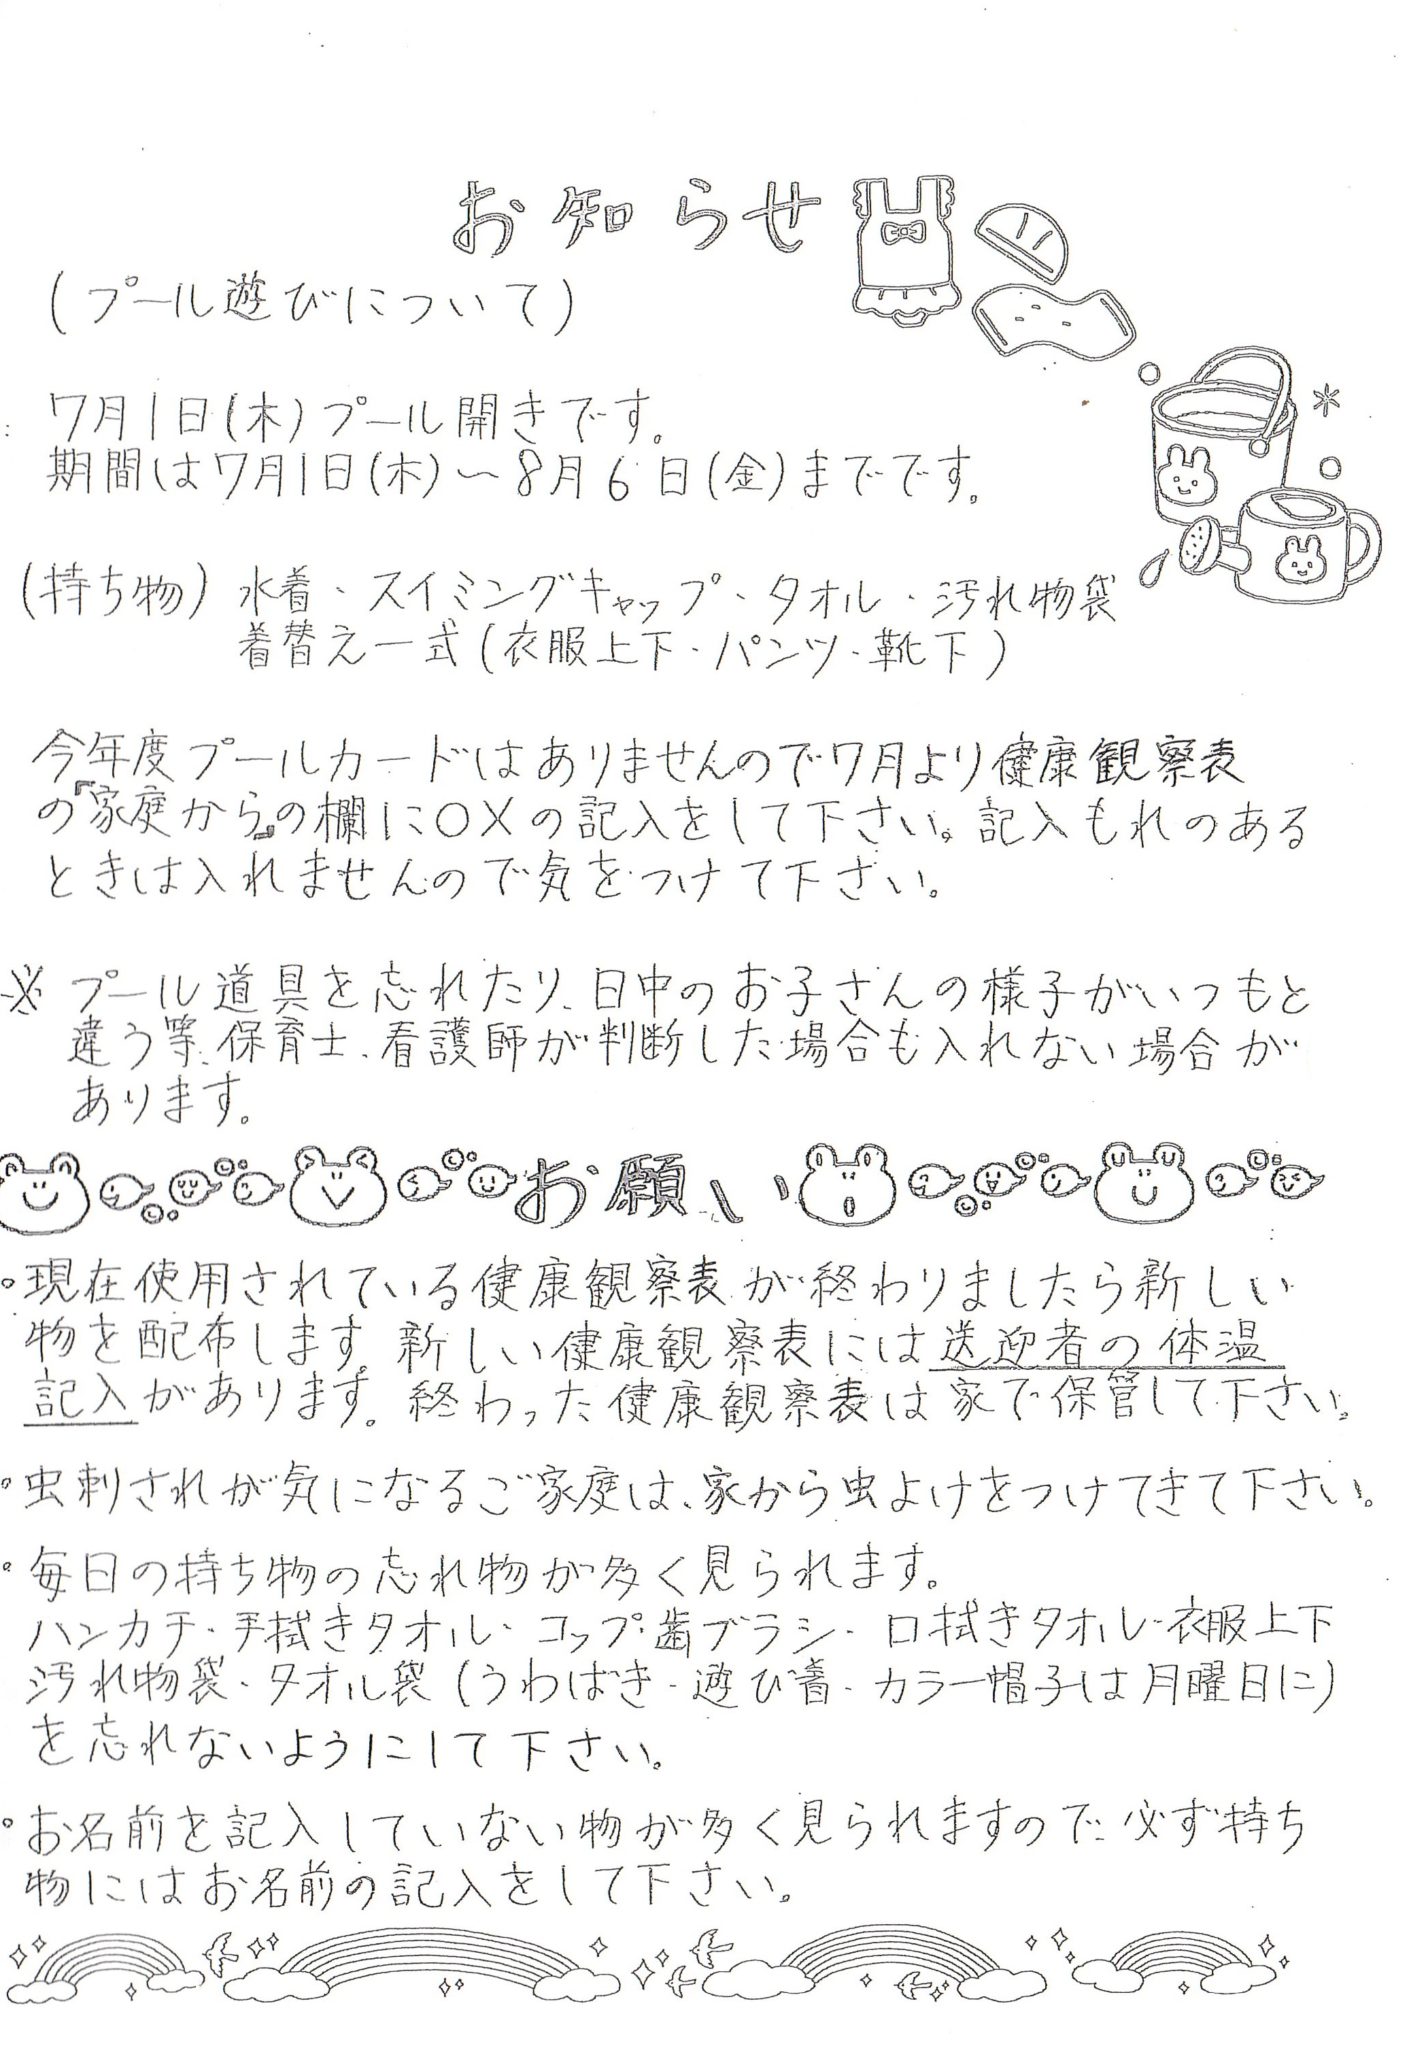 お知らせ
(プール遊びについて)
7月1日(木)プール開きです。
期間は7月1日(木)〜8月6日(金)までです。
(持ち物) 水着・スイミングキャップ・タオル・汚れ物袋
着替え一式(衣服上下・パンツ・靴下)
今年度プールカードはありませんので7月より健康観察表
の『家庭から』の欄に○×の記入をして下さい。記入もれのある
ときは入れませんので気をつけて下さい。
※ プール道具を忘れたり、日中のお子さんの様子がいつもと
違う等、保育士、看護師が判断した場合も入れない場合が
あります。
お願い
・現在使用されている健康観察表が終わりましたら新しい
物を配布します。新しい健康観察表には送迎者の体温
記入があります。終わった健康観察表は家で保管して下さい。
・虫刺されが気になるご家庭は、家から虫よけをつけてきて下さい。
・毎日の持ち物の忘れ物が多く見られます。
ハンカチ・手拭きタオル・コップ・歯ブラシ・口拭きタオル・衣服上下
汚れ物袋・タオル袋(うわばき・遊び着・カラー帽子は月曜日に)
を忘れないようにして下さい。
・お名前を記入していない物が多く見られますので、必ず持ち
物にはお名前の記入をして下さい。